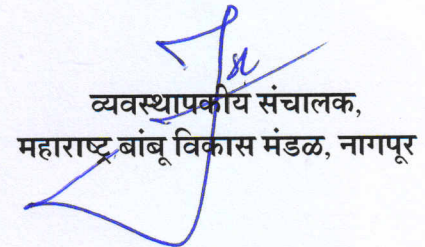 व्यवस्थापकीय संचालक,
महाराष्ट्र बांबू विकास मंडळ, नागपूर